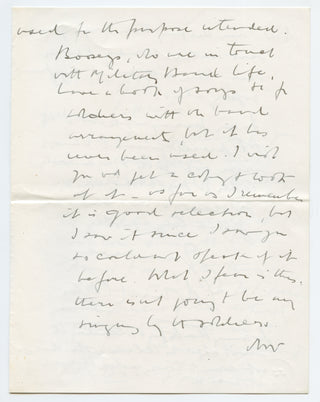 used for the purpose intended.
Booseys, who are in touch
with Military Band life,
have a book of songs &c for
soldiers with the band
arrangements, but it has
never been used. I wish
you wd get a copy & look
at it - as far as I remember
it is good selection, but
I saw it since I saw you
so could not speak of it
before. What I fear is this.
there isnt going to be any
singing by the soldiers